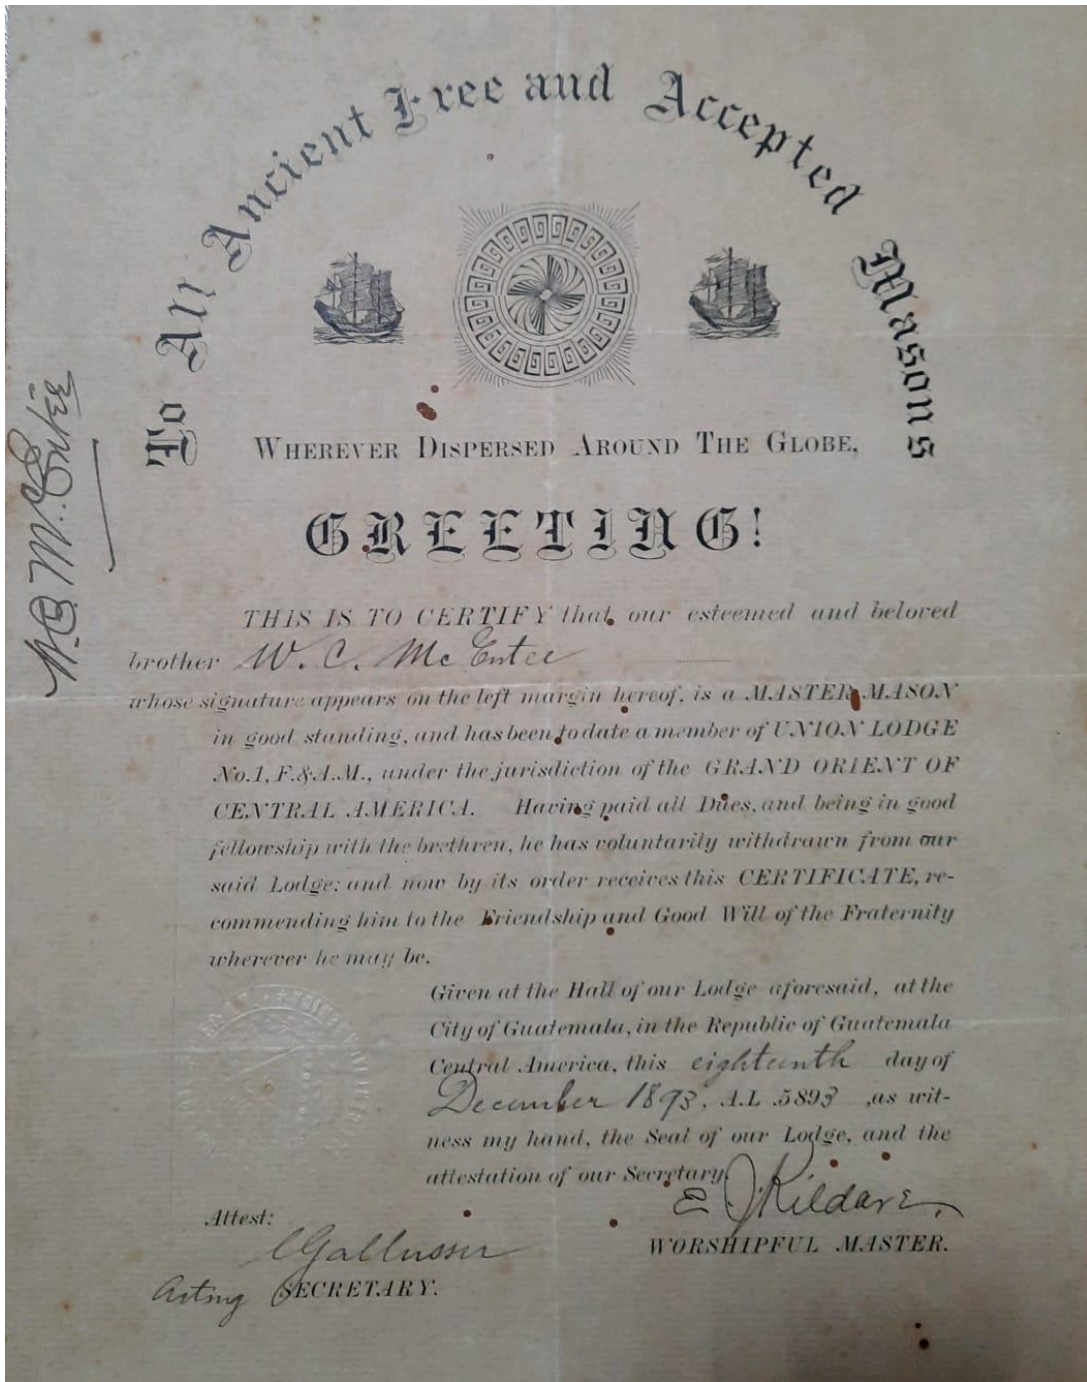 To All Ancient Free and Accepted Masons
WHEREVER DISPERSED AROUND THE GLOBE,
GREETING!
THIS IS TO CERTIFY that our esteemed and beloved
brother W. C. McEntee
whose signature appears on the left margin hereof, is a MASTER MASON
in good standing, and has been to date a member of UNION LODGE
No. 1, F. & A. M., under the jurisdiction of the GRAND ORIENT OF
CENTRAL AMERICA. Having paid all Dues, and being in good
fellowship with the brethren, he has voluntarily withdrawn from our
said Lodge; and now by its order receives this CERTIFICATE, re-
commending him to the Friendship and Good Will of the Fraternity
wherever he may be.
Given at the Hall of our Lodge aforesaid, at the
City of Guatemala, in the Republic of Guatemala
Central America, this eighteenth day of
December 1893, A.L 5893 ,as wit-
ness my hand, the Seal of our Lodge, and the
attestation of our Secretary.
E J Kildare,
WORSHIPFUL MASTER.
Attest:
Acting SECRETARY.
W. C. McEntee